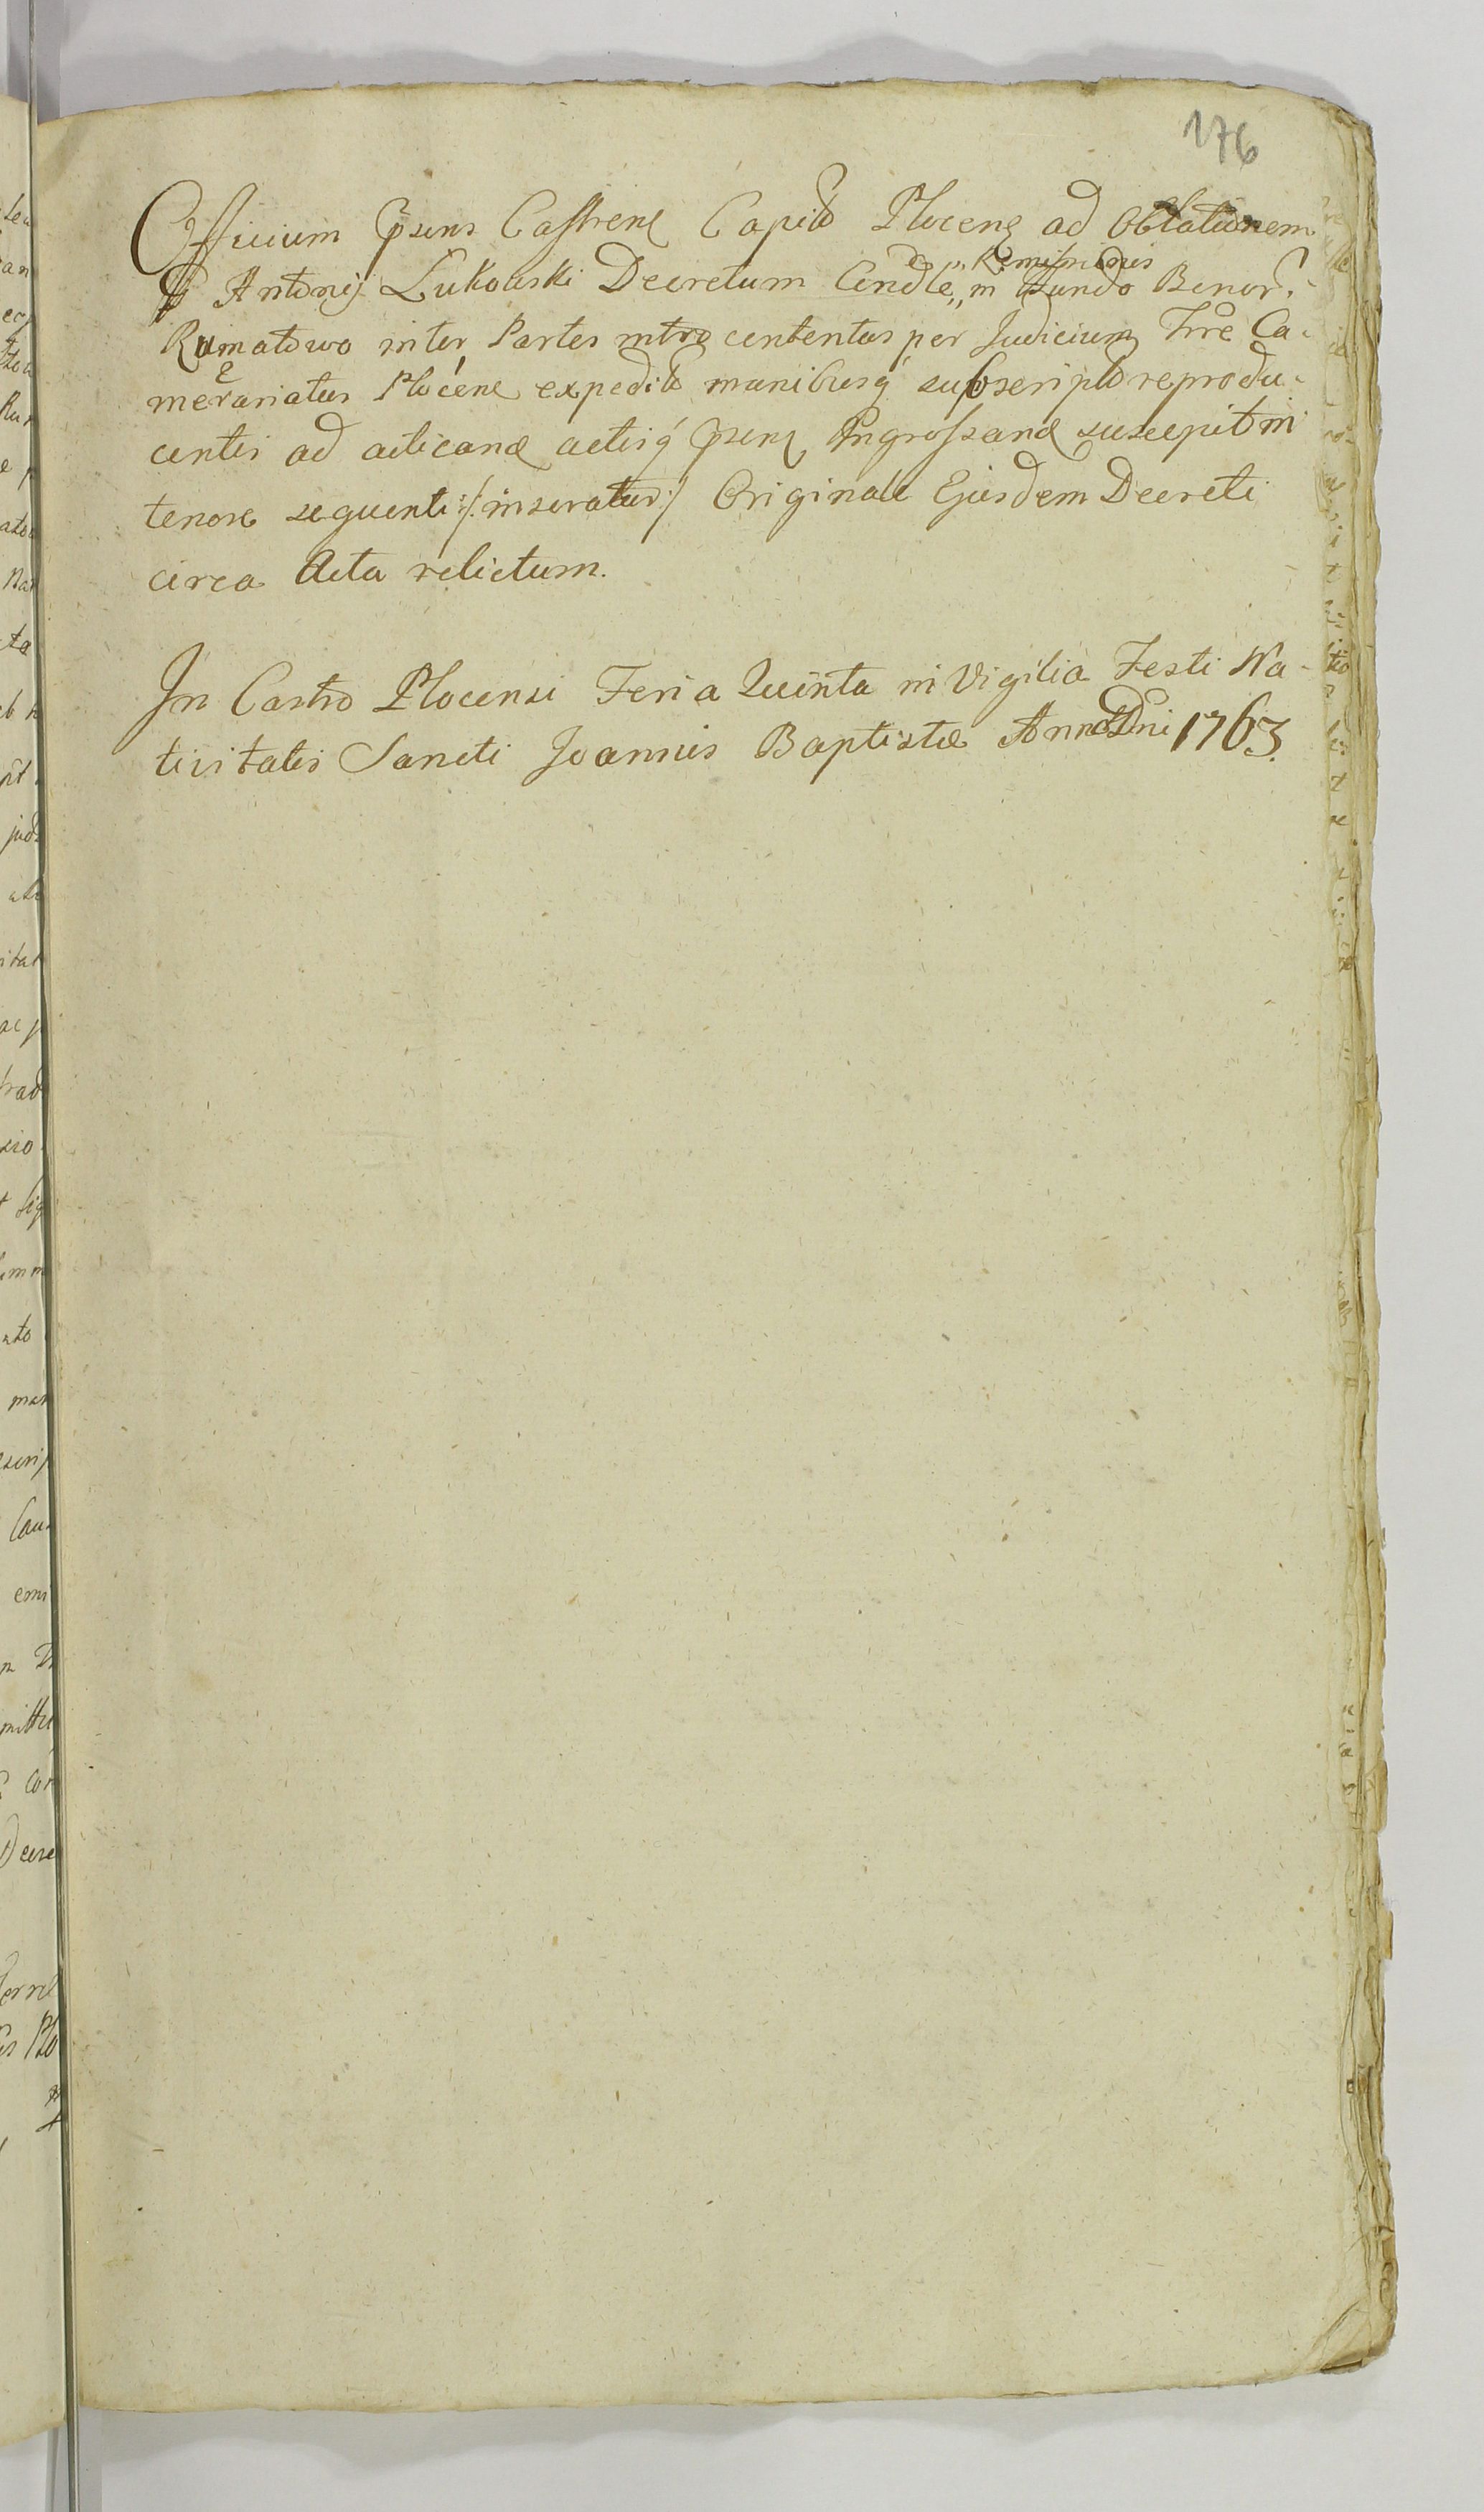 176
Officium Psens Castrens Capitl Plocens ad Oblationem
G Antonij Łukowski Decretum Condle „Remissionis„ in Fundo Bonor
Rumatowo inter Partes intro contentas per Judicium Trre Ca-
merariatus Plocens expedit manibusq subscript reprodu-
centis ad acticand actisq psent Ingrossand suscepit in
tenore sequenti :/: inseratur :/ Originale Ejusdem Decreti
circa Acta relictum.
In Castro Plocensi Feria Quinta in Vigilia Festi Na-
tivitatis Sancti Joannis Baptistæ Anno Dni 1763.